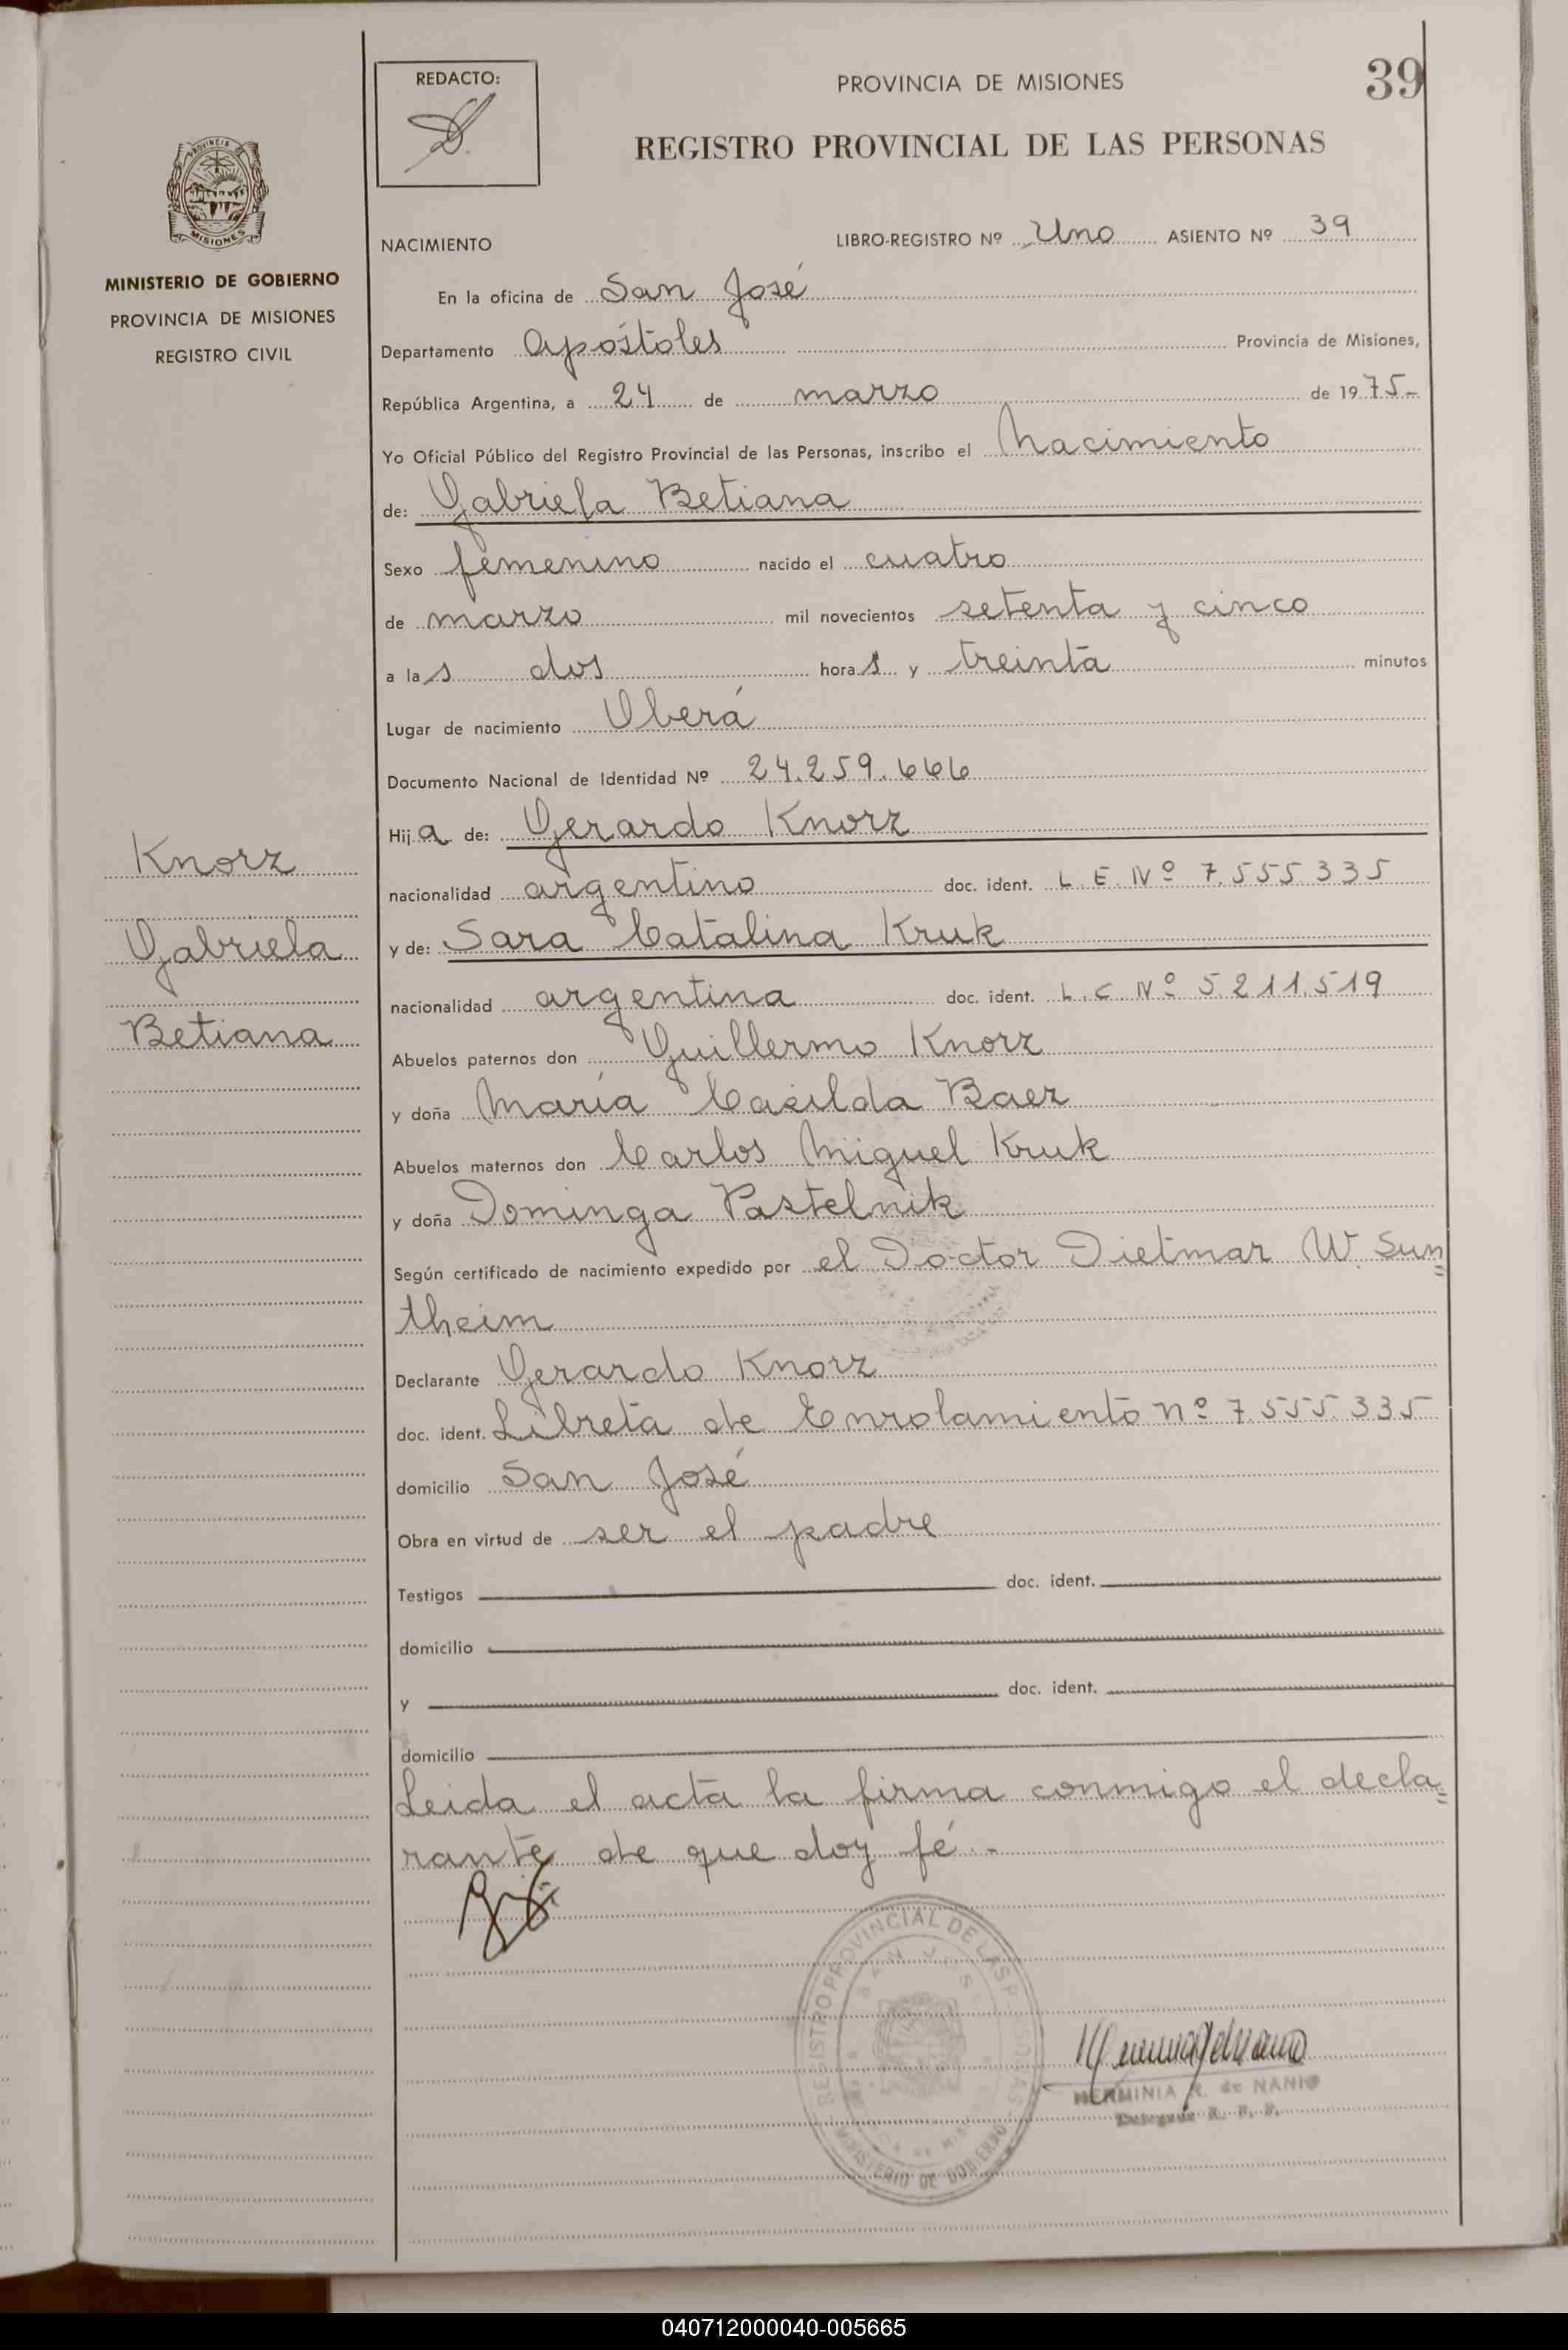 REDACTO:
PROVINCIA DE MISIONES
39
REGISTRO PROVINCIAL DE LAS PERSONAS
PROVINCIA DE
MISIONES
MINISTERIO DE GOBIERNO
PROVINCIA DE MISIONES
REGISTRO CIVIL
NACIMIENTO LIBRO-REGISTRO Nº Uno ASIENTO Nº 39
En la oficina de San José
Departamento Apóstoles Provincia de Misiones,
República Argentina, a 24 de marzo de 1975-
Yo Oficial Público del Registro Provincial de las Personas, inscribo el Nacimiento
de: Gabriela Betiana
Sexo femenino nacido el cuatro
de marzo mil novecientos setenta y cinco
a las dos horas y treinta minutos
Lugar de nacimiento Oberá
Documento Nacional de Identidad Nº 24.259.666
Hija de: Gerardo Knorz
nacionalidad argentino doc. ident. L. E. Nº 7.555.335
y de: Sara Catalina Kruk
nacionalidad argentina doc. ident. L. C Nº 5.211.519
Abuelos paternos don Guillermo Knorz
y doña María Casilda Baez
Abuelos maternos don Carlos Miguel Kruk
y doña Dominga Pastelnik
Según certificado de nacimiento expedido por el Doctor Dietmar W. Sun=
theim
Declarante Gerardo Knorz
doc. ident. Libreta de Enrolamiento nº 7.555.335
domicilio San José
Obra en virtud de ser el padre
Testigos doc. ident.
domicilio
y doc. ident.
domicilio
Leida el acta la firma conmigo el decla=
rante de que doy fé.-
Knorz
Gabriela
Betiana
REGISTRO PROVINCIAL DE LAS PERSONAS
MINISTERIO DE GOBIERNO
HERMINIA R. de NANIO
Delegada R. P. P.
040712000040-005665